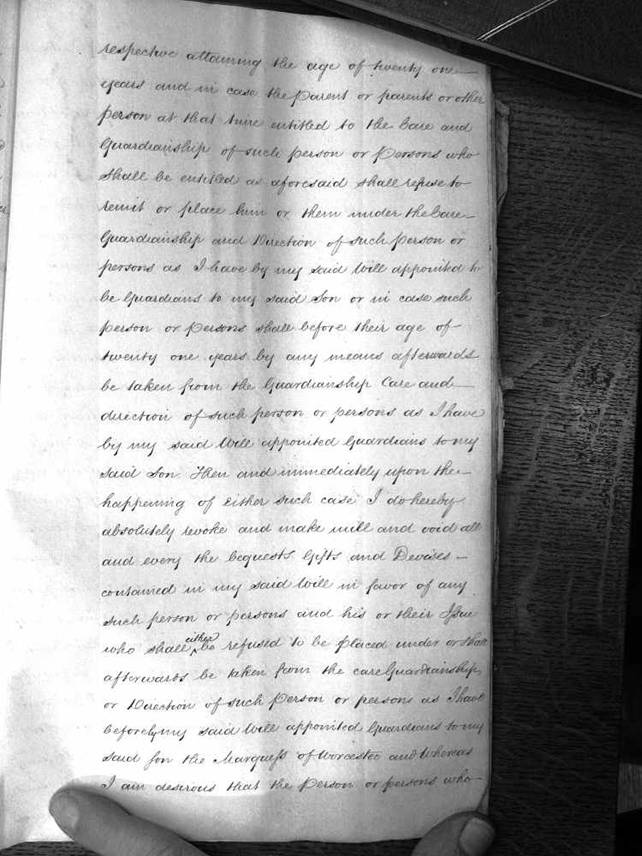 respective attaining the age of twenty one
years and in case the Parent or parents or other
person at that time entitled to the Care and
Guardianship of such person or Persons who
shall be entitled as aforesaid shall refuse to
remit or place him or them under the Care
Guardianship and Direction of such Person or
persons as I have by my said Will appointed to
be Guardians to my said Son or in case such
person or Persons shall before their age of
twenty one years by any means afterwards
be taken from the Guardianship Care and
direction of such person or persons as I have
by my said Will appointed Guardians to my
said Son Then and immediately upon the
happening of Either such case I do hereby
absolutely revoke and make null and void all
and every the bequests Gifts and Devises
contained in my said Will in favor of any
such person or persons and his or their Issue
who shall either be refused to be placed under or shall
afterwards be taken from the care Guardianship
or Direction of such Person or persons as I have
before by my said Will appointed Guardians to my
said son the Marquess of Worcester and Whereas
I am desirous that the Person or persons who